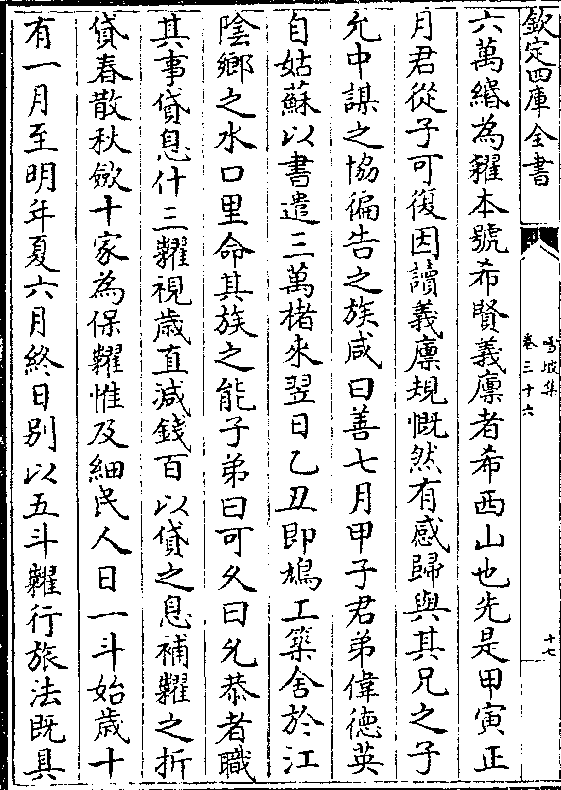 欽定四庫全書
雪坡集
卷三十六
十七
六萬緡為糴本號希賢義廩者希西山也先是甲寅正
月君從子可復因讀義廩規慨然有感歸與其兄之子
允中謀之協徧告之族咸曰善七月甲子君弟偉德英
自姑蘇以書遣三萬楮來翌日乙丑即鳩工築舍於江
陰鄉之水口里命其族之能子弟曰可久曰允恭者職
其事貸息什三糶視歲直減錢百以貸之息補糶之折
貸春散秋斂十家為保糶惟及細民人日一斗始歲十
有一月至明年夏六月終日别以五斗糶行旅法既具